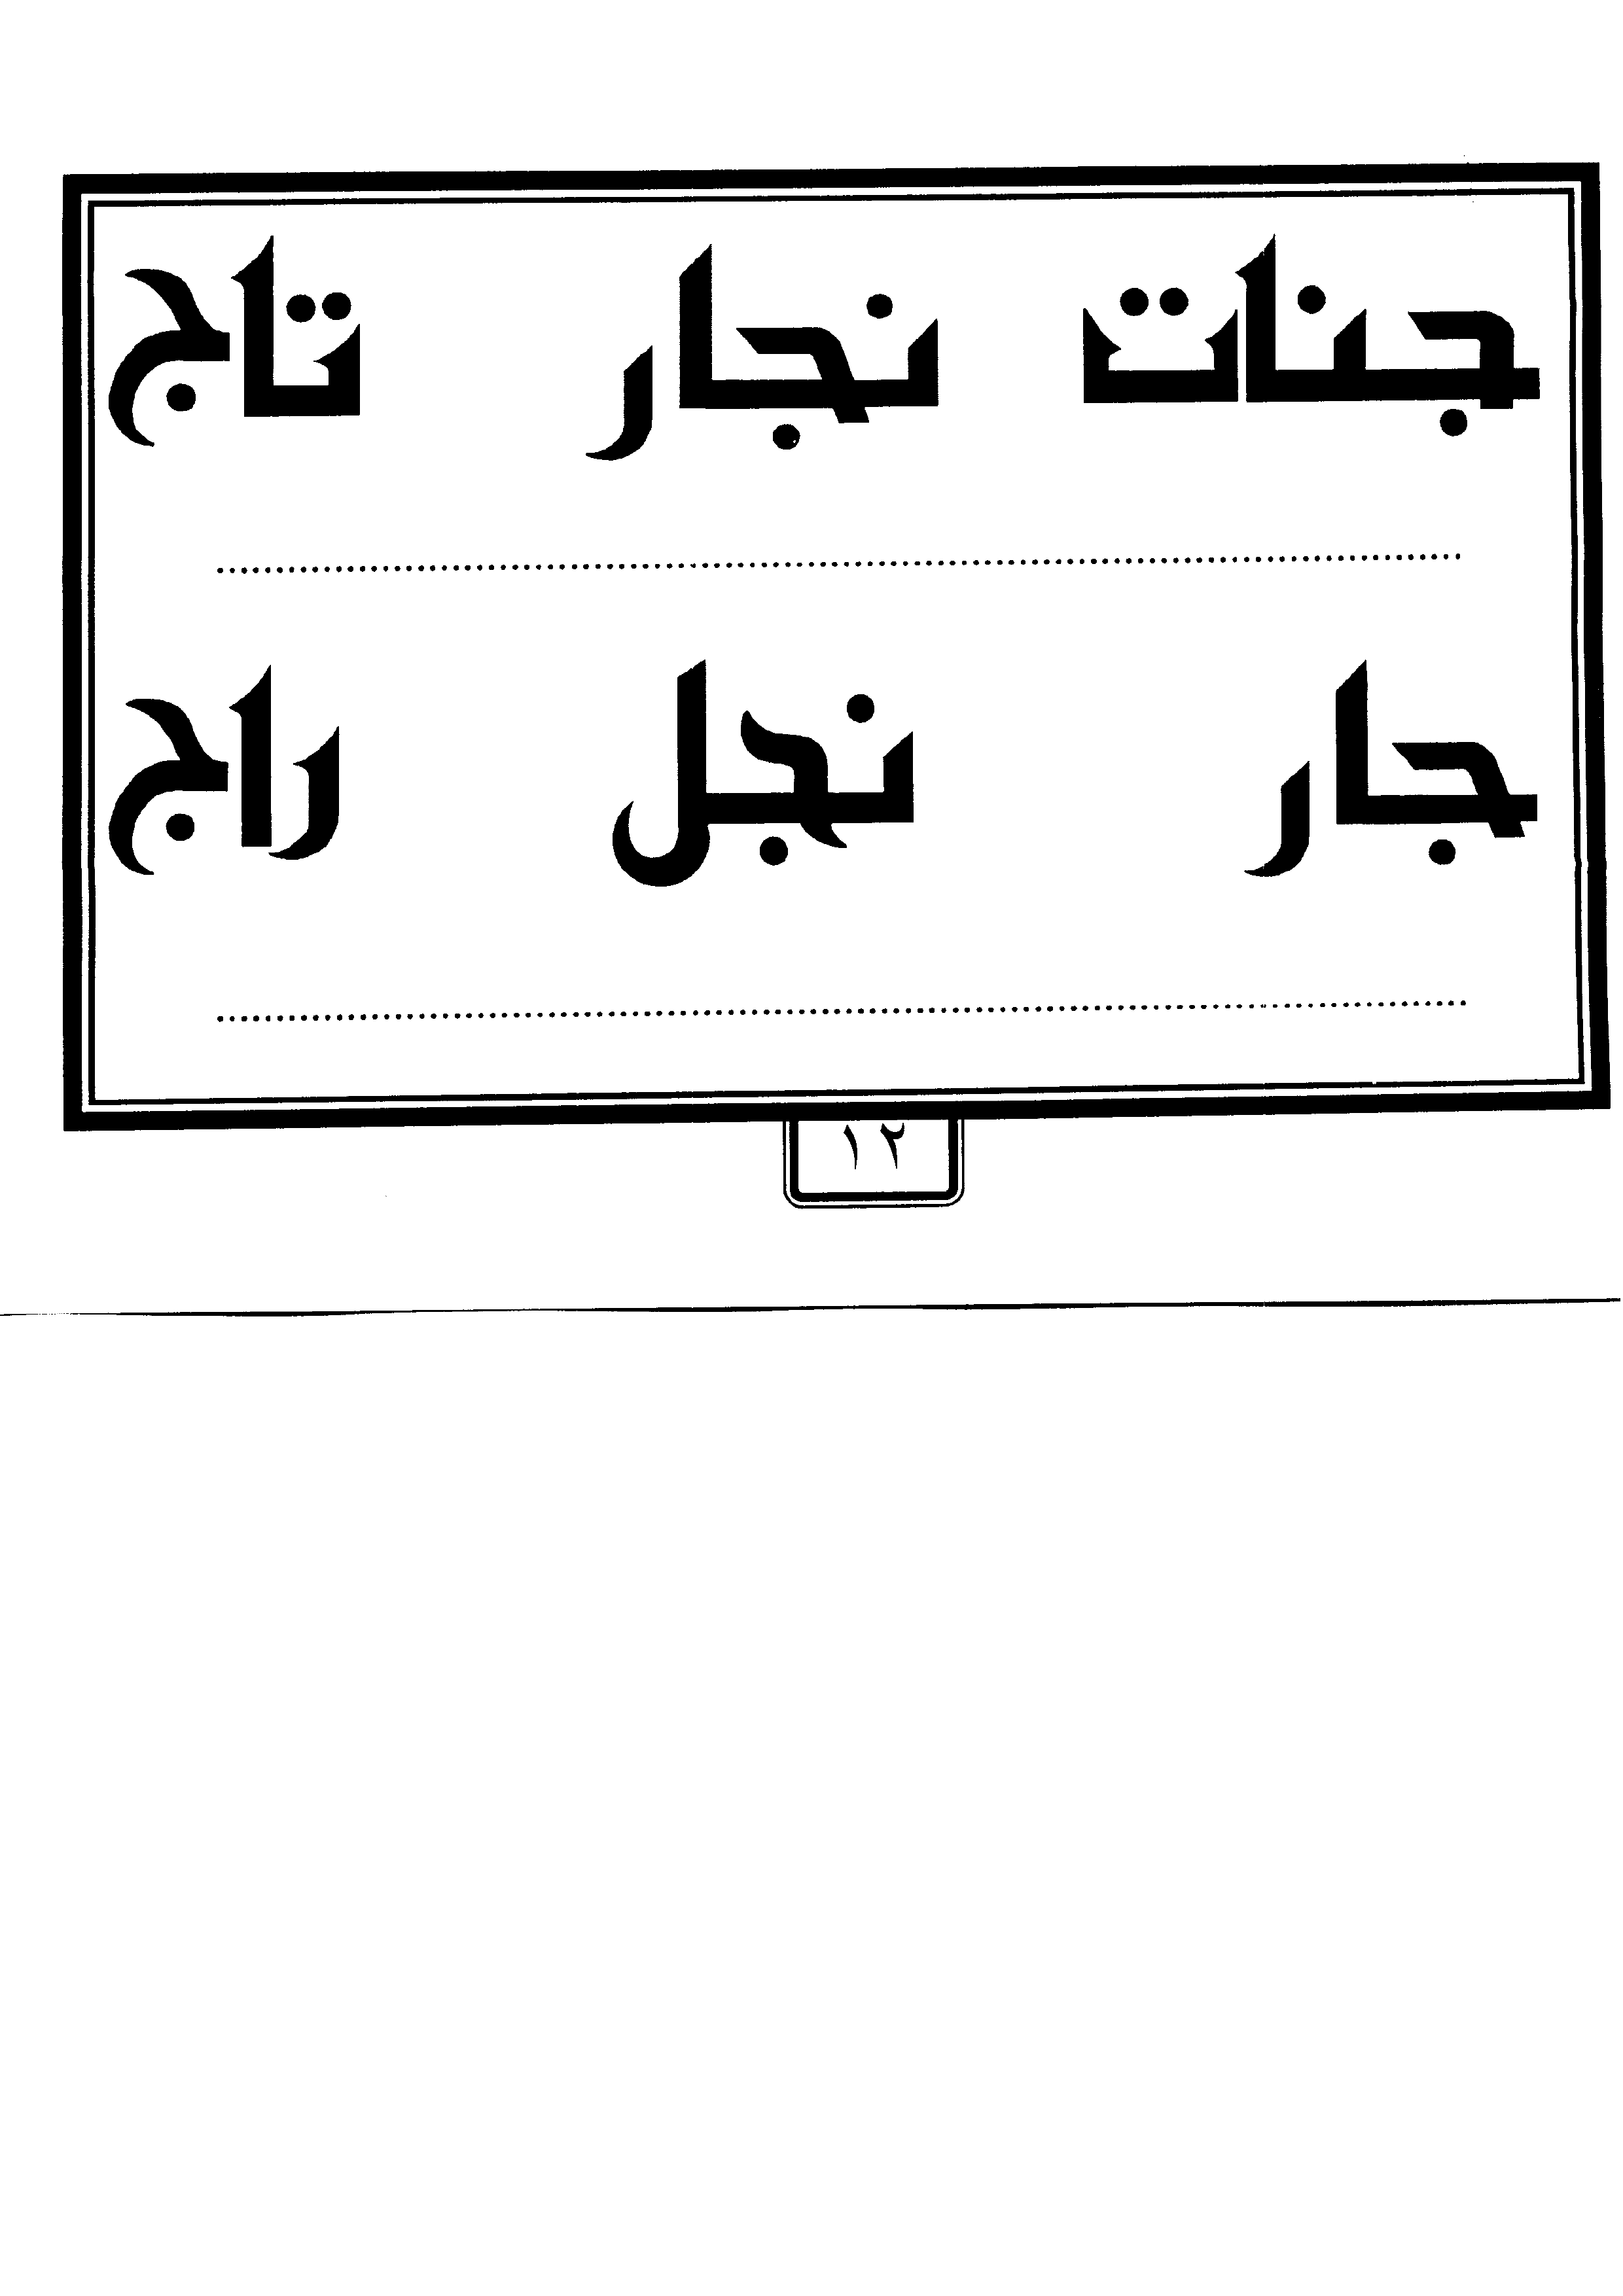 جنات نجار تاج
جار نجل راج
١٢